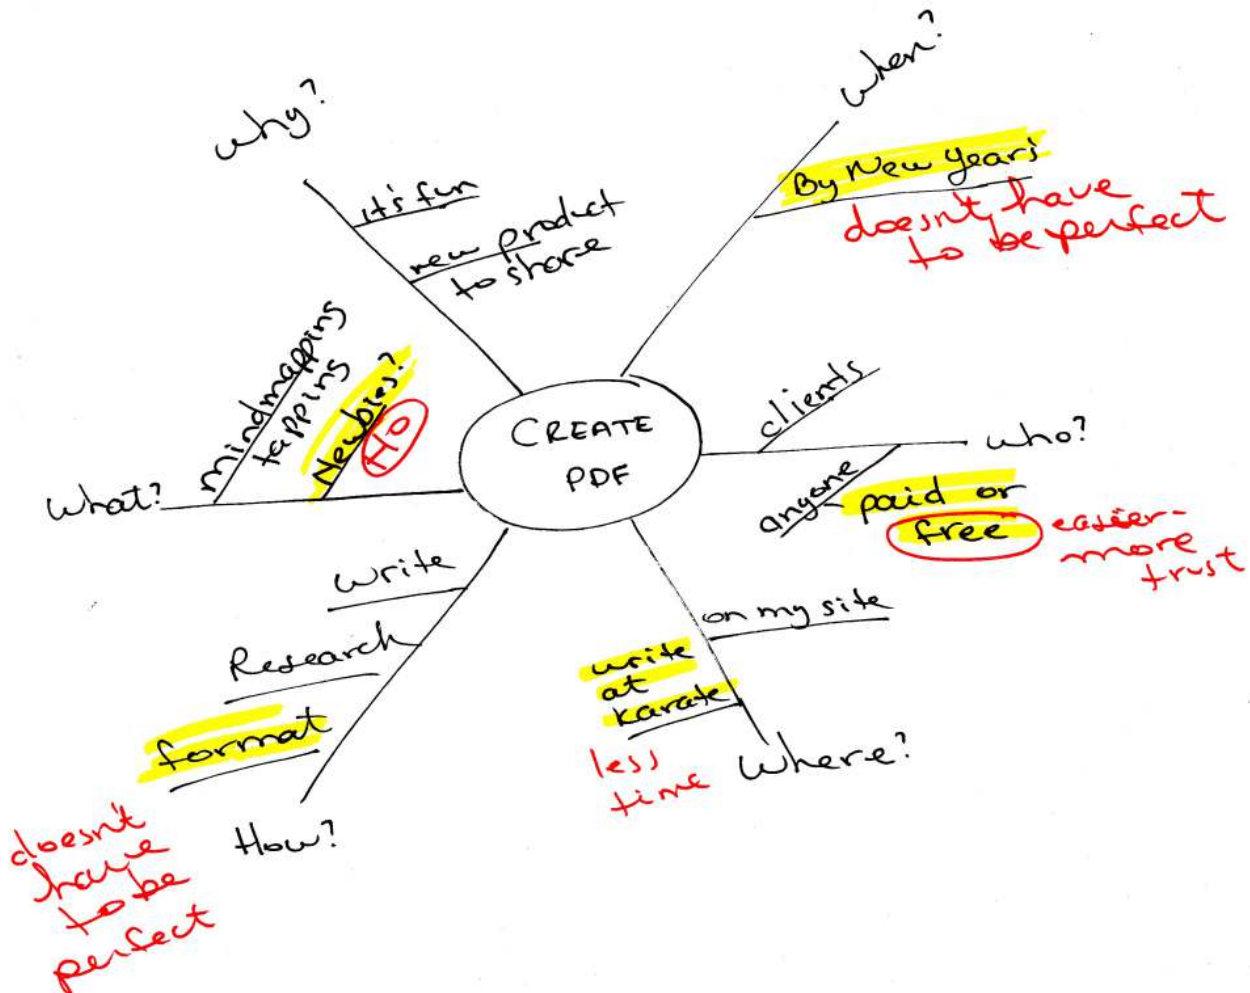 why?
it's fun
new product
to share
when?
By New Years
doesn't have
to be perfect
CREATE
PDF
clients
who?
anyone
paid or
free
easier-
more
trust
on my site
write
at
karate
less
time
where?
write
Research
format
doesn't
have
to be
perfect
How?
what?
mindmapping
tapping
Newbies?